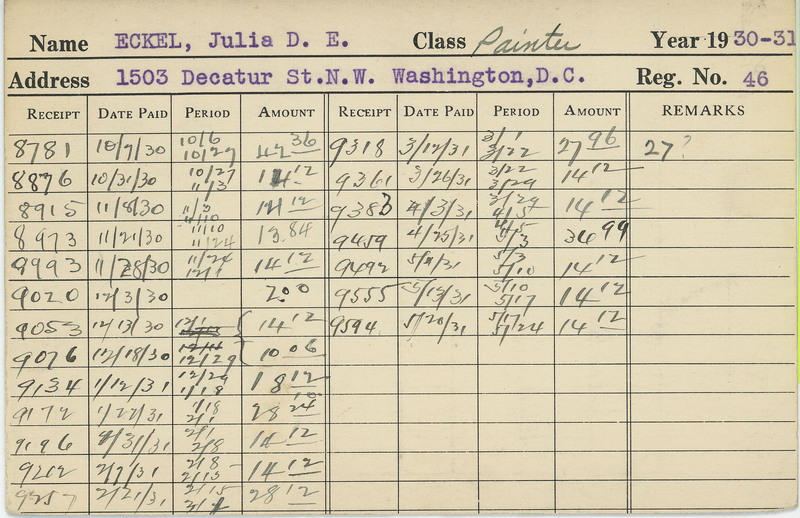 Name ECKEL, Julia D. E. Class Painter Year 19 30-31
Address 1503 Decatur St.N.W. Washington,D.C. Reg. No. 46
RECEIPT DATE PAID PERIOD AMOUNT RECEIPT DATE PAID PERIOD AMOUNT REMARKS
8781 10/7/30 10/6 10/27 42 36 9318 3/12/31 3/1 3/22 27 96 27?
8876 10/31/30 10/27 11/3 14 12 9361 3/26/31 3/22 3/29 14 12
8915 11/8/30 11/3 11/10 14 12 9383 4/3/31 3/29 4/5 14 12
8973 11/21/30 11/10 11/24 13.84 9459 4/25/31 4/5 5/3 99
11/28/30 11/24 12/1 14 12 9492 5/3 5/10 14 12
9020 12/3/30 2 00 9555 5/10 5/17 14 12
9053 12/13/30 12/1 14 12 9594 5/20/31 5/17 5/24 14 12
9076 12/18/30 12/29 10 06
9134 1/12/31 12/29 1/18 18 12
9172 1/22/31 1/18 2/1 28 24
9196 2/1 2/8 14 12
9212 2/7/31 2/8 14 12
9257 2/21/31 2/15 28 12